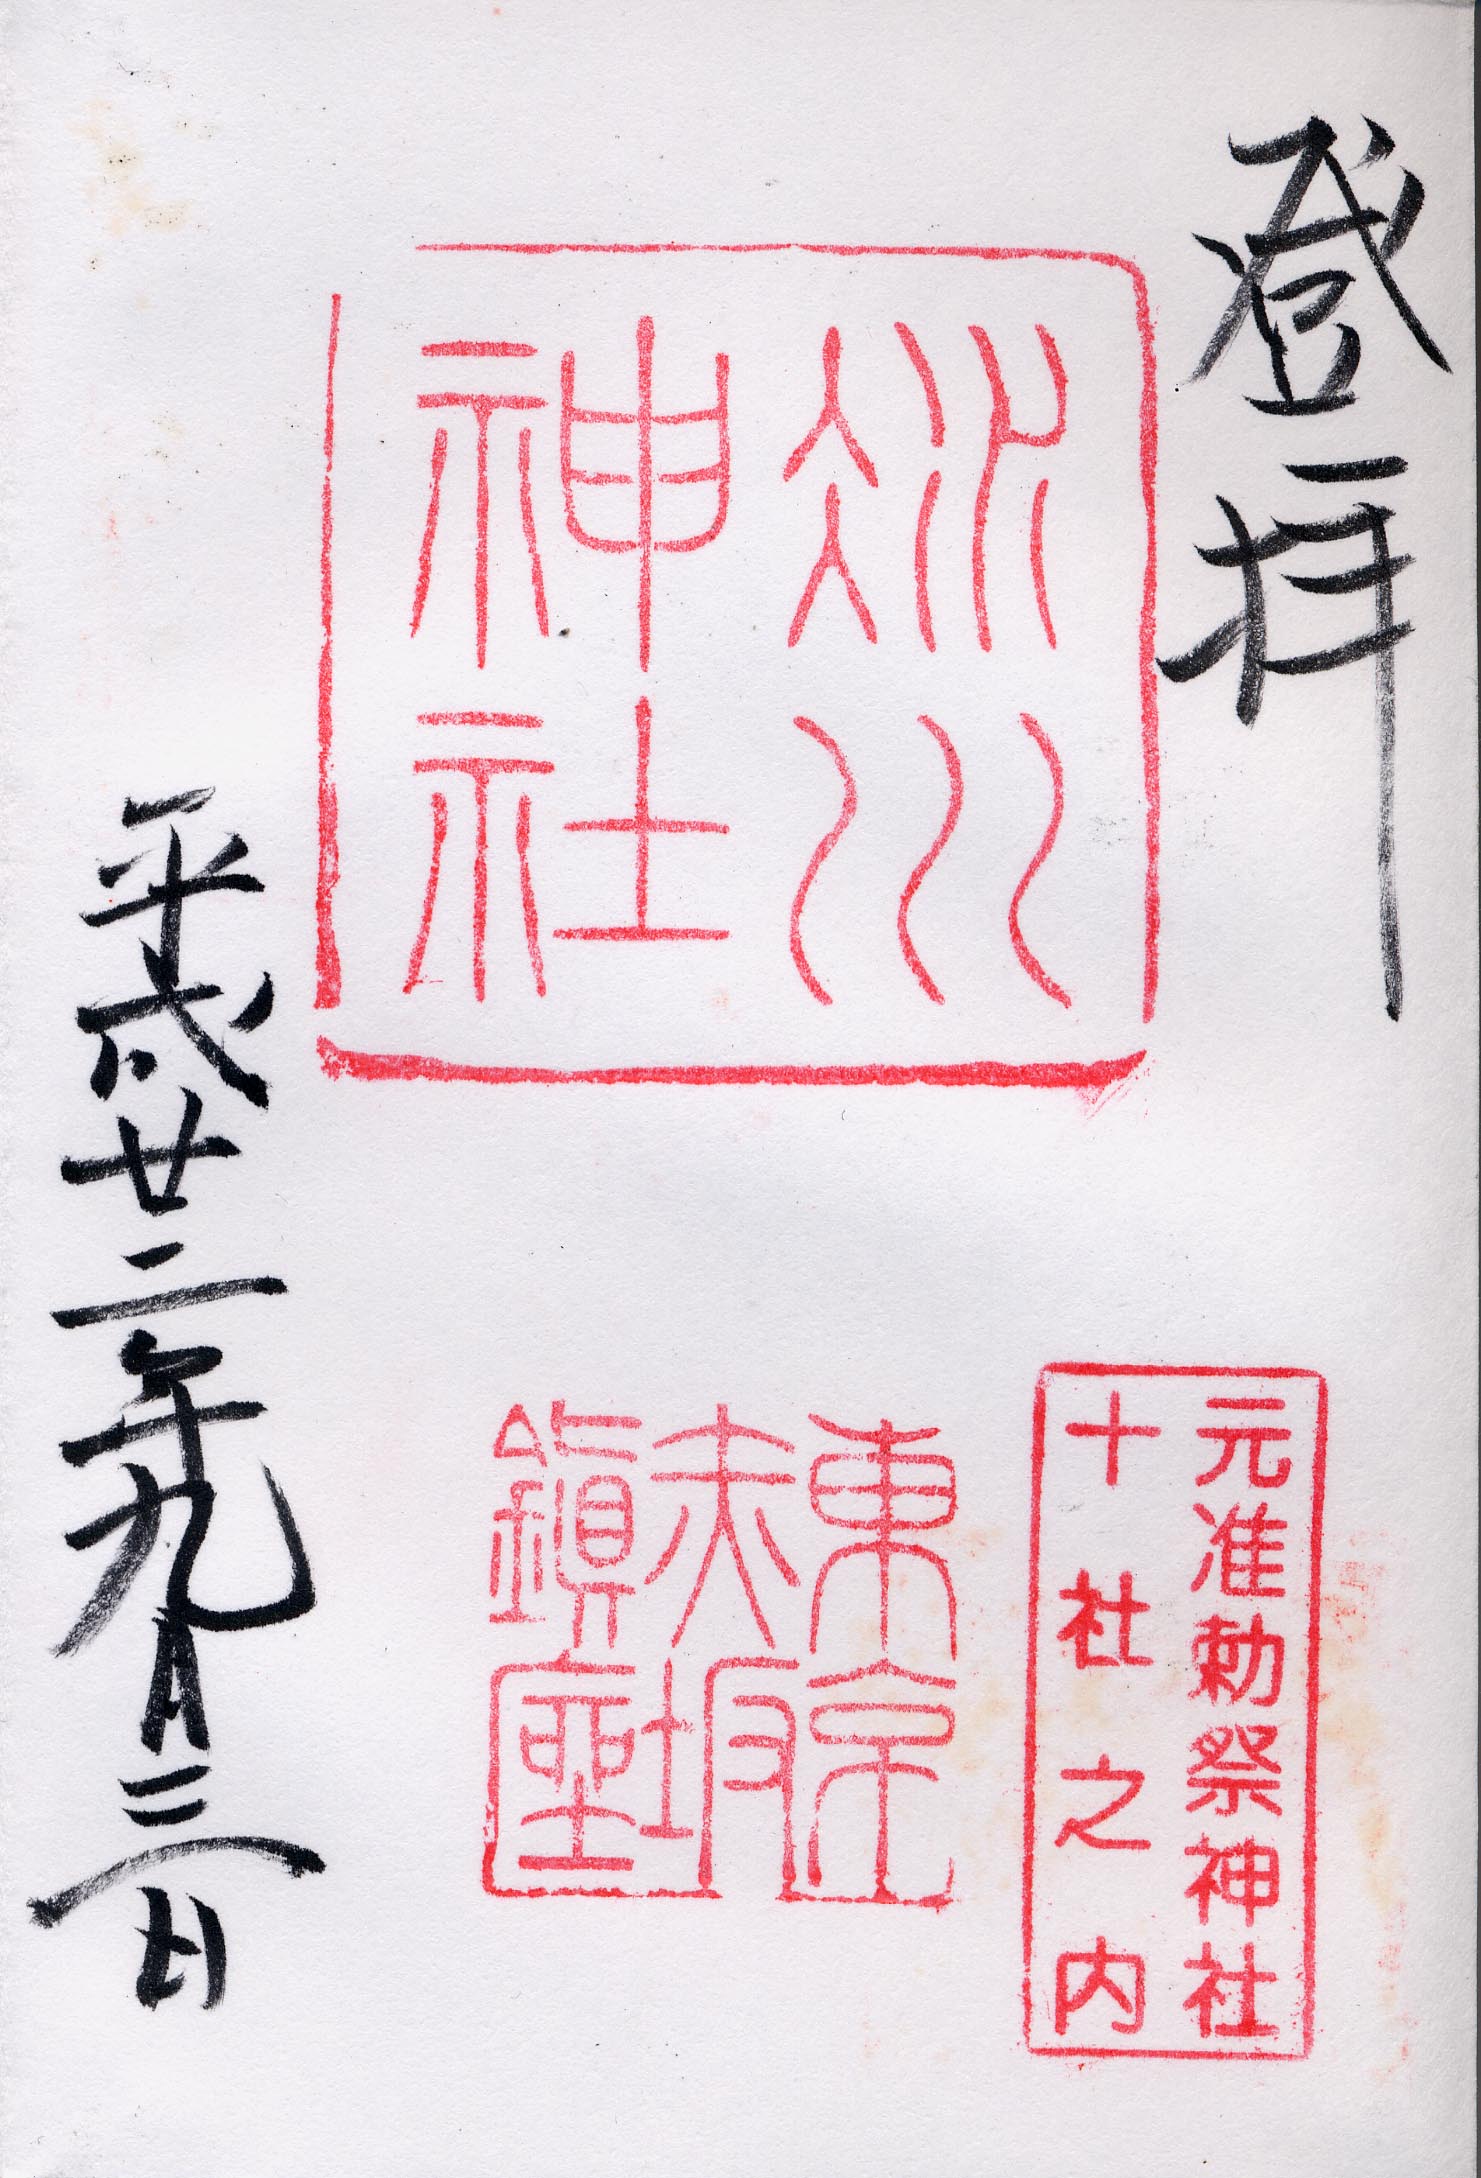 登拝
冰川
神社
元准勅祭神社
十社之内
東京
赤坂
鎭座
平成廿二年九月三日